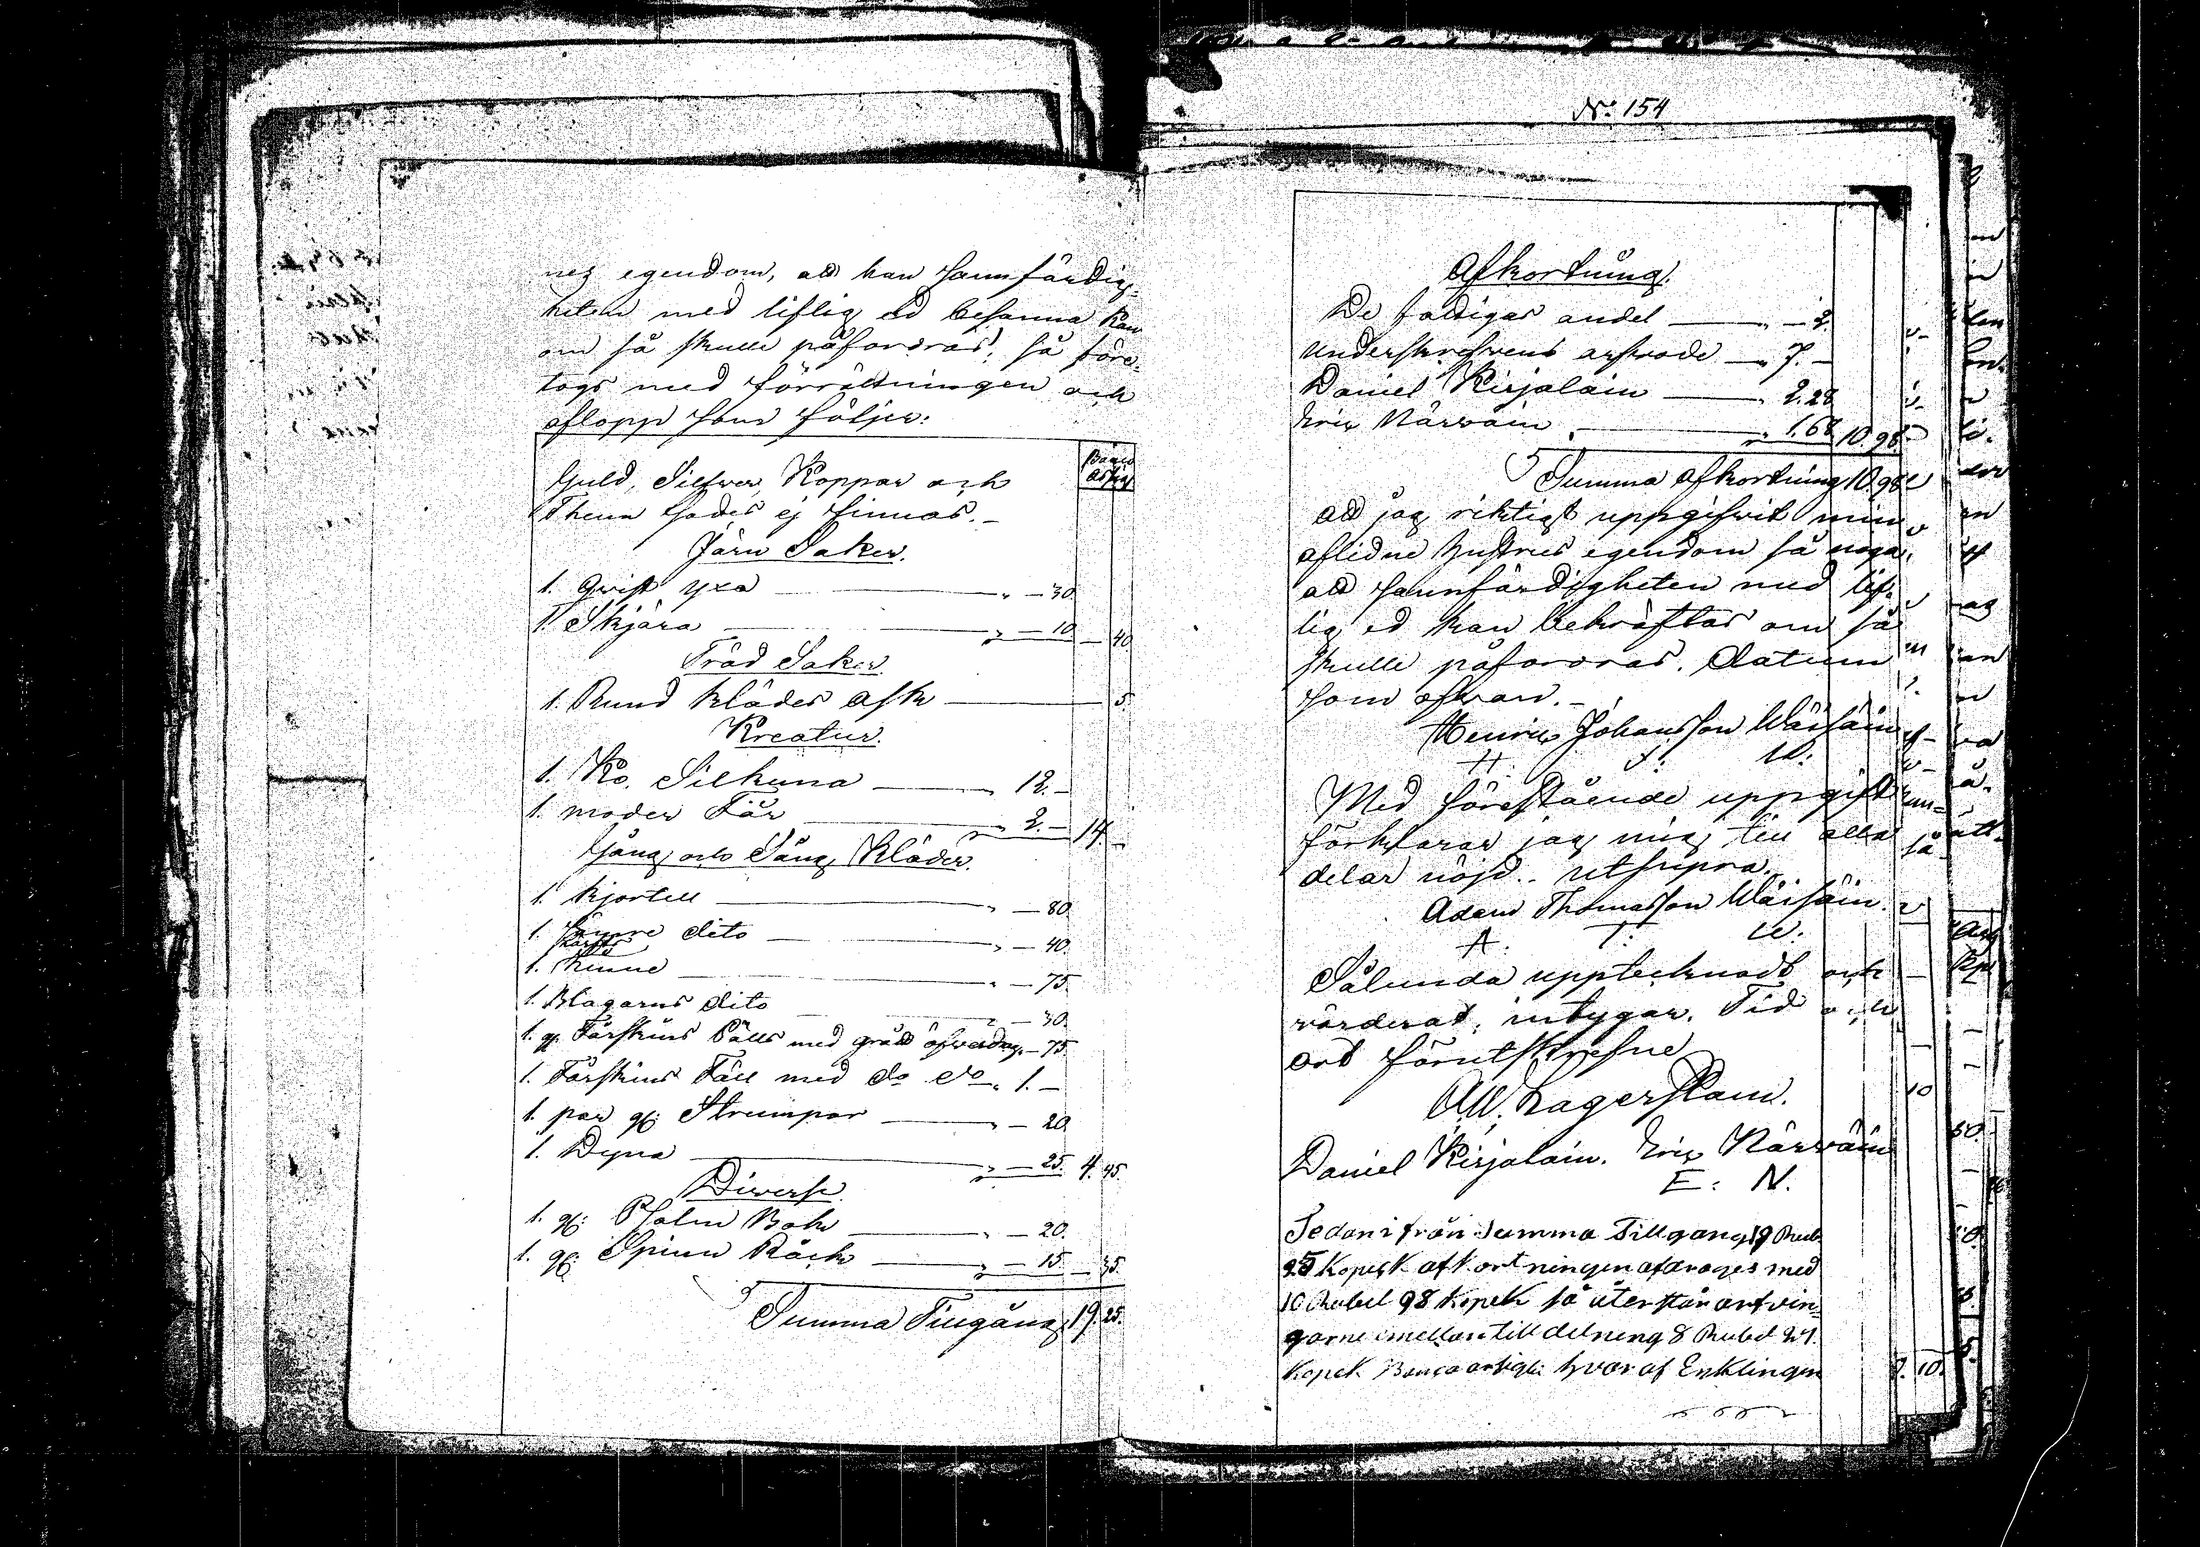 nes egendom, att han sannfärdig-
heten med liflig ed besanna kan
om så skulle påfordras, så före-
togs med förrättningen och
aflopp som följer:
Banco
Guld, Silfver, Koppar och
Thenn Godes ej finnas. -
Järn Saker.
1. Qvist yxa " - 30
1. Skjära " - 10 - 40
Träd Saker
1. Rund Klädes Ask 5.
Kreatur.
1. Ko, Silkuna " 12. -
1. moder Får " 2. - 14. -
Gång och Säng Kläder.
1. Kjortell " - 80.
1. Sämre dito " - 40.
1. " - 75.
1. Blagarns dito " - 30.
1. gl. Fårskins Pälts med grått öfverdrag " - 75.
1. Fårskins Fäll med do do " 1. -
1. par gl: Strumpor " - 20.
1. Dyna " - 25. 4. 45
Diverse.
1. gl: Psalm Bok " - 20.
1. gl: Spinn Råck " - 15 - 35.
Summa Tillgång 19. 25.
No. 154
Afkortning.
De fattigas andel " - 3.
Underskrefvens arfvode " 7. -
Daniel Kirjalain " 2.28
Eric Närväin " 1.68 10. 98.
Summa afkortning 10. 98
att jag riktigt uppgifvit min
aflidne hustrus egendom så noga,
att sannfärdigheten med lif-
lig ed kan bekräftas om så
skulle påfordras. Datum
som ofvan. -
Henric Johansson Wäisäin
H: J: W:
Med förestående uppgift
förklarar jag mig till alla
delar nöjd. - utsupra.
Adam Thomasson Wäisäin.
A. T: W:
Sålunda upptecknadt och
värderat, intygar. Tid och
ort förutskrefne
Lagerstam.
Daniel Kirjalain. Eric Närväin
E: N.
Sedan ifrån Summa Tillgang 19 Rub.
25 Kopek afkortningen afdrages med
10 Rubel 98 Kopek så återstår arfvin-
garne emellan till delning 8 Rubel 27.
Kopek Banco hvar af Enklingen